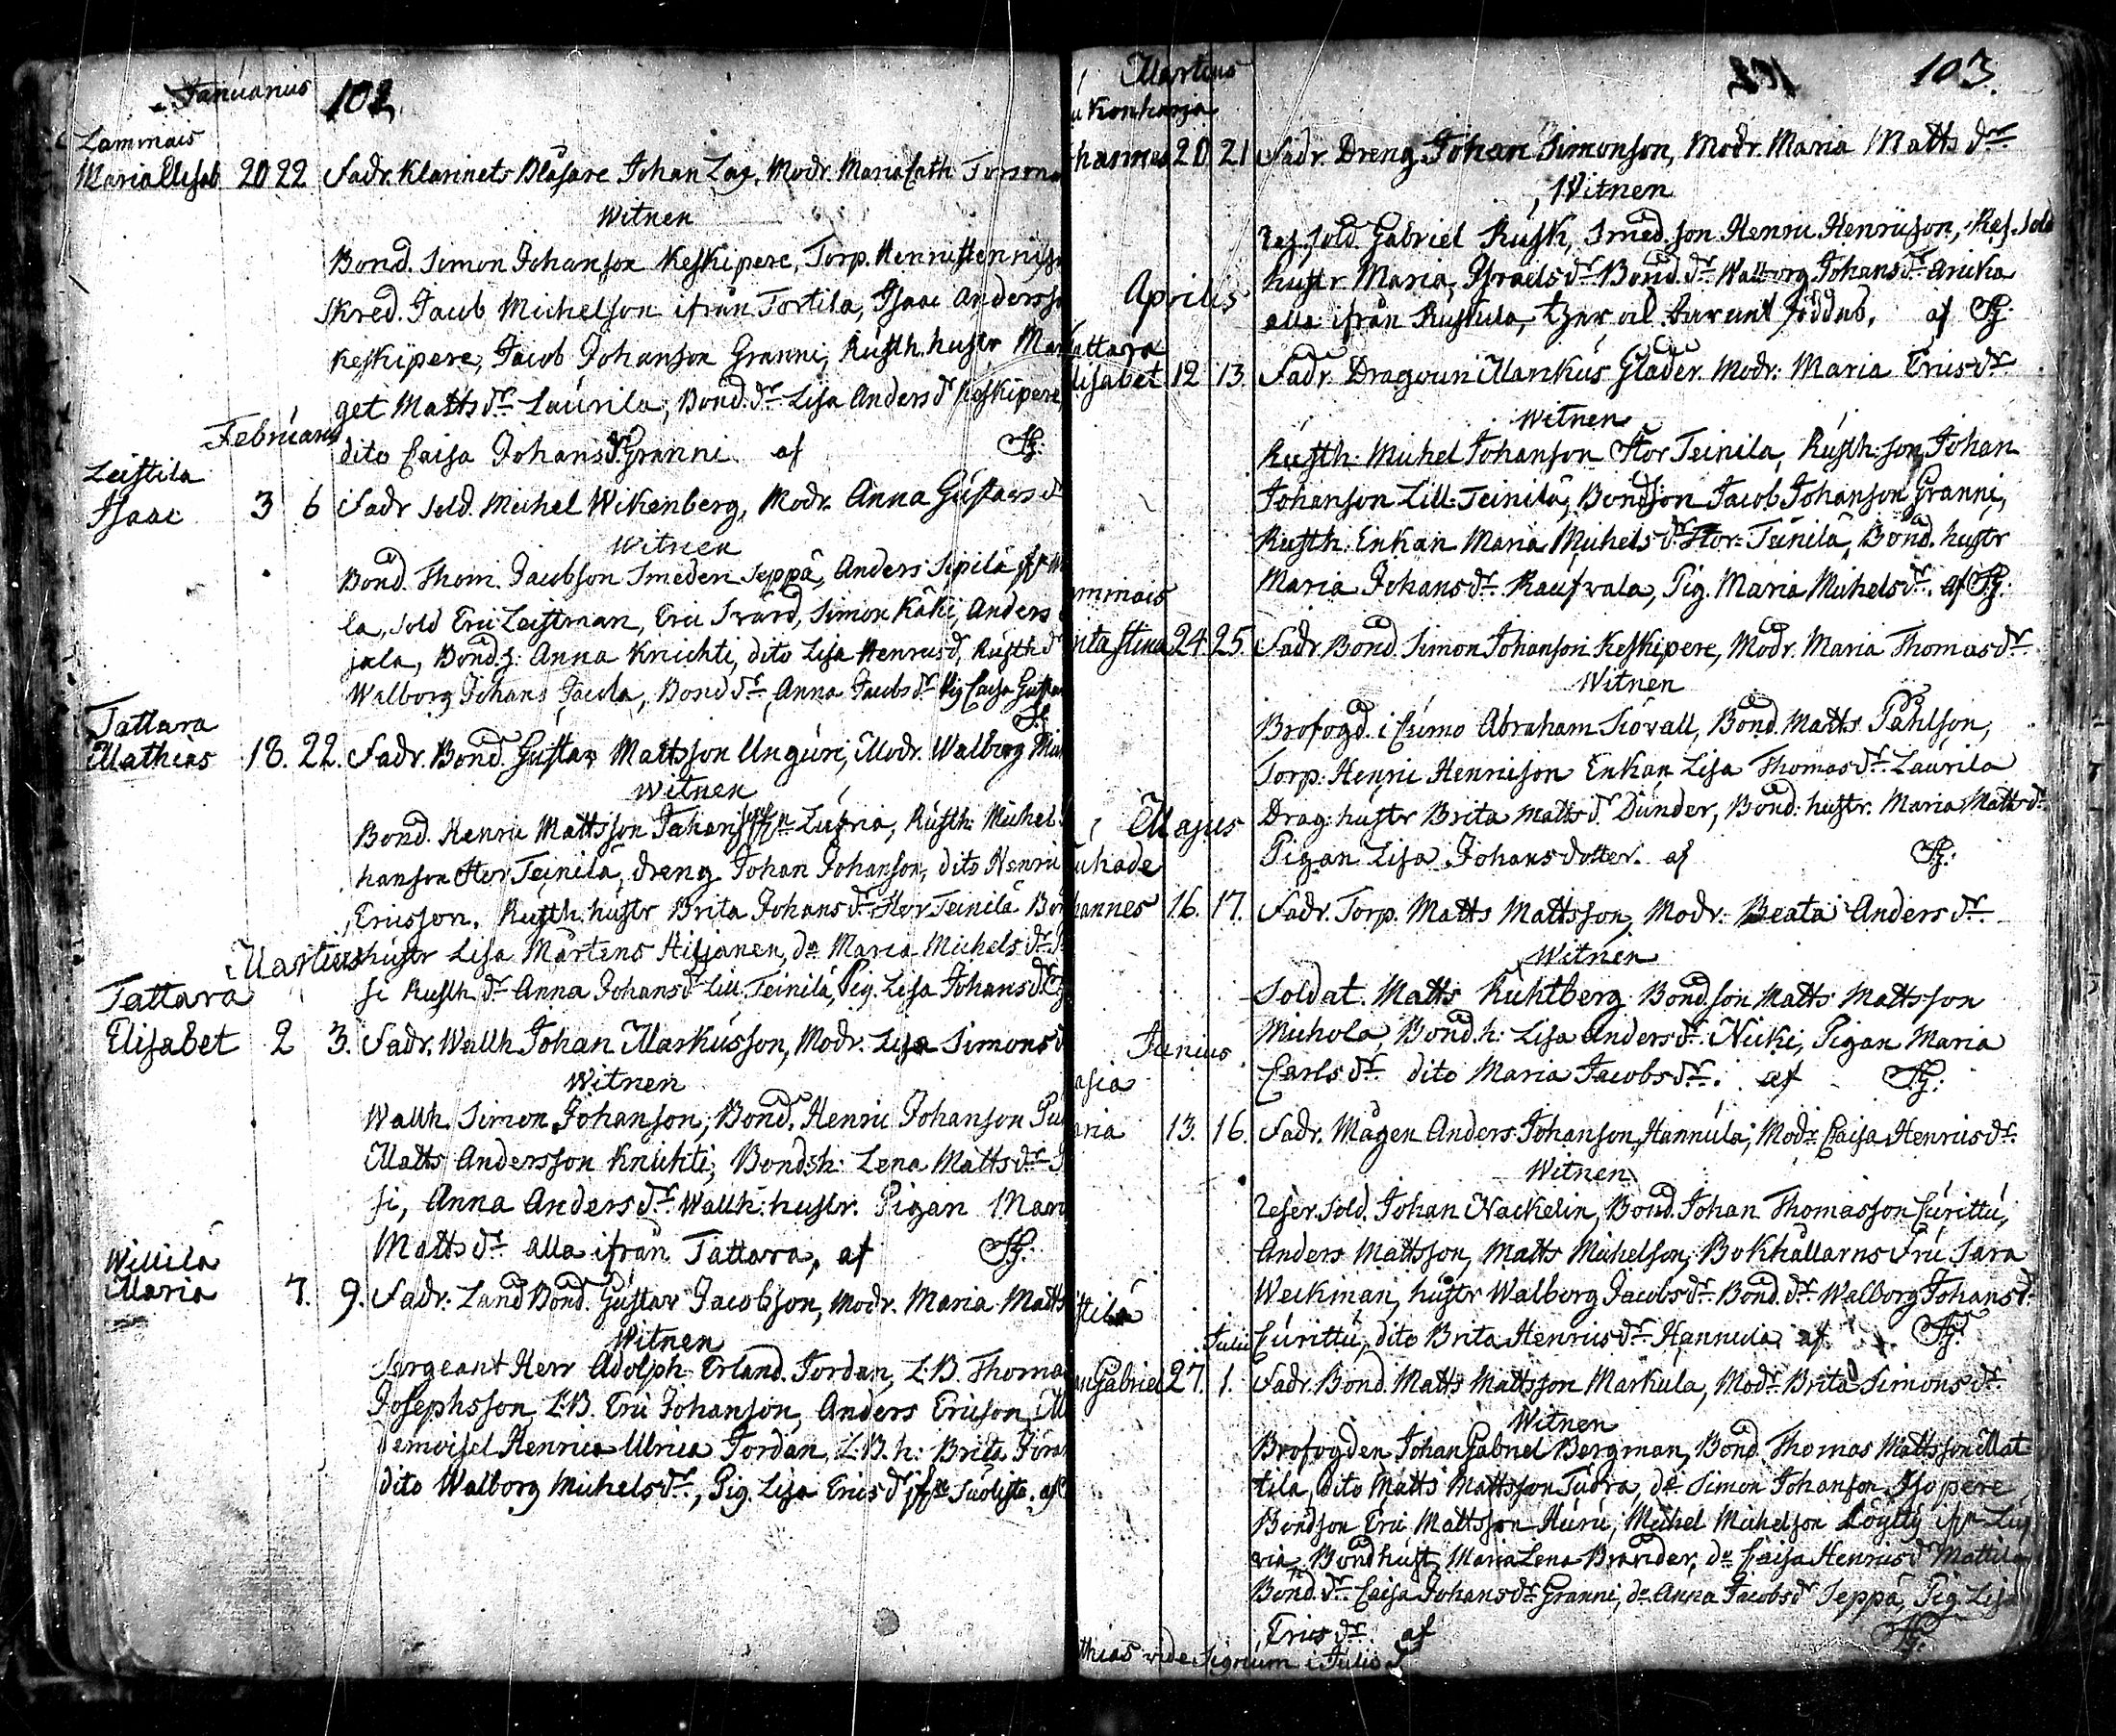 Januarius 102
Lammais
Maria Elisab 20 22 Fadr. Klarinets Blåsare Johan Lag. Modr. Maria Cath
Witnen
Bond. Simon Johanson Keskipere, Torp. Henri Henrisson
Skred. Jacob Michelson ifrån Tortila, Isaac Andersso
Keskipere, Jacob Johanson Granni, Rusth. hustr Mar
get Matts dr Laurila, Bond. dr Lisa Anders dr Keskipere,
Februarius
dito Caisa Johans dr Granni af
Leistila
Isaac 3 6 Fadr Sold. Michel Wikenberg, Modr. Anna Gustavs d
Witnen
Bond. Thom. Jacobson Smeden Seppä, Anders Sipilä
la, Sold Eric Leistman, Eric Svärd, Simon Käki, Anders
jala, Bond. h. Anna Knichti, dito Lisa Henrics d, Rusth d
Walborg Johans Jacola, Bond dr Anna Jacobs dr Pig Caisa Gustav
Tattara
Mathias 18. 22. Fadr. Bond. Gustav Mattsson Unguri, Modr. Walborg
Witnen
Bond. Henric Mattsson Luvia, Rusth. Michel
hanson Stor Teinilä, dreng Johan Johanson, dito Henric
Ericsson. Rusth. hustr Brita Johans dr Stor Teinilä Bon
Martius hustr Lisa Mårtens Hiljanen, do Maria Michels dr
Tattara si Rusth dr Anna Johans dr Lill Teinilä, Pig. Lisa Johans dr
Elisabet 2 3. Fadr. Wallh Johan Markusson, Modr. Lisa Simons d
Witnen
Wallh. Simon Johanson, Bond. Henric Johanson
Matts Andersson Knichti, Bondsh: Lena Matts dr
si, Anna Anders dr Wallh: hustr. Pigan Mar
Matts dr alla ifrån Tattara, af
Willilä
Maria 7. 9. Fadr: Land Bond. Gustav Jacobson, Modr. Maria Matts
Witnen
Sergeant Herr Adolph Erland Jordan, L:B. Thoma
Josephsson L:B. Eric Johanson, Anders Ericson, M
demoisel Henrica Ulrica Jordan, L:B.h: Brita Jöra
dito Walborg Michels dr, Pig. Lisa Erics dr Suoliste. af
Martius 103.
Konkarja
hannes 20 21 Fadr. Dreng Johan Simonson, Modr. Maria Matts dr
Witnen
Res. Sold Gabriel Rusk, Smed. son Henric Henricson, Res. Sold
hustr Maria Israels dr Bond. dr Walborg Johans dr Anika
Aprilis alla ifrån Ruskula,
attara
lisabet 12 13 Fadr. Dragoun Markus Glader. Modr: Maria Erics dr
Witnen
Rusth: Michel Johanson Stor Teinila, Rusth: son Johan
Johanson Lill: Teinilä, Bondson Jacob Johanson Granni,
Rusth: Enkan Maria Michels dr Stor-Teinilä, Bond. hustr
mmais Maria Johans dr Raufvala, Pig. Maria Michels dr af
rita Stina 24 25 Fadr. Bond. Simon Johanson Keskipere, Modr. Maria Thomas dr
Witnen
Brofogd. i Cumo Abraham Siövall, Bond. Matts Påhlson,
Torp. Henric Henricson Enkan Lisa Thomas dr Laurila
Majus Drag: hustr Brita Matts d. Dunder, Bond: hustr. Maria Matts dr
uhade Pigan Lisa Johans dotter. af
hannes 16. 17. Fadr. Torp. Matts Mattsson, Modr. Beata Anders dr
Witnen
Soldat. Matts Kuhlberg. Bondson Matts Mattsson
Junius Michola, Bond. h: Lisa Anders dr Nicki, Pigan Maria
asia Carls dr dito Maria Jacobs dr. af
aria 13. 16. Fadr. Mågen Anders Johanson Hannula, Modr Caisa Henrics dr
Witnen
Reser. Sold. Johan Nackelin, Bond. Johan Thomasson Curittu,
Anders Mattsson, Matts Michelson, Bokhållarns Fru Sara
Weckman, hustr Walborg Jacobs dr Bond. dr Walborg Johans dr
Julii Curittu, dito Brita Henrics dr Hannula af
Gabriel 27. 1. Fadr. Bond. Matts Mattsson Markula, Modr Brita Simons dr
Witnen
Brofogden Johan Gabriel Bergman, Bond Thomas Mattsson Mat
tila, dito Matts Mattsson Tudra, do Simon Johanson Isopere
Bondson Eric Mattsson Huru, Michel Michelson Löyttÿ
via. Bond hust, Maria Lena Brander, do Caisa Henrics dr Mattila
Bond. dr Caisa Johans dr Granni, do Anna Jacobs dr Seppä, Pig. Lisa
Erics dr af
thias vide Signum i Julio